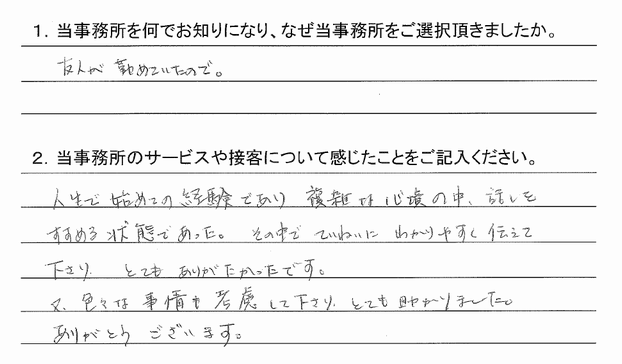 1. 当事務所を何でお知りになり、なぜ当事務所をご選択頂きましたか。
友人が勤めていたので。
2. 当事務所のサービスや接客について感じたことをご記入ください。
人生で始めての経験であり 複雑な心境の中、話しを
すすめる状態であった。その中で ていねいに わかりやすく伝えて
下さり とても ありがたかったです。
又、色々な 事情も 考慮して下さり とても助かりました。
ありがとう ございます。